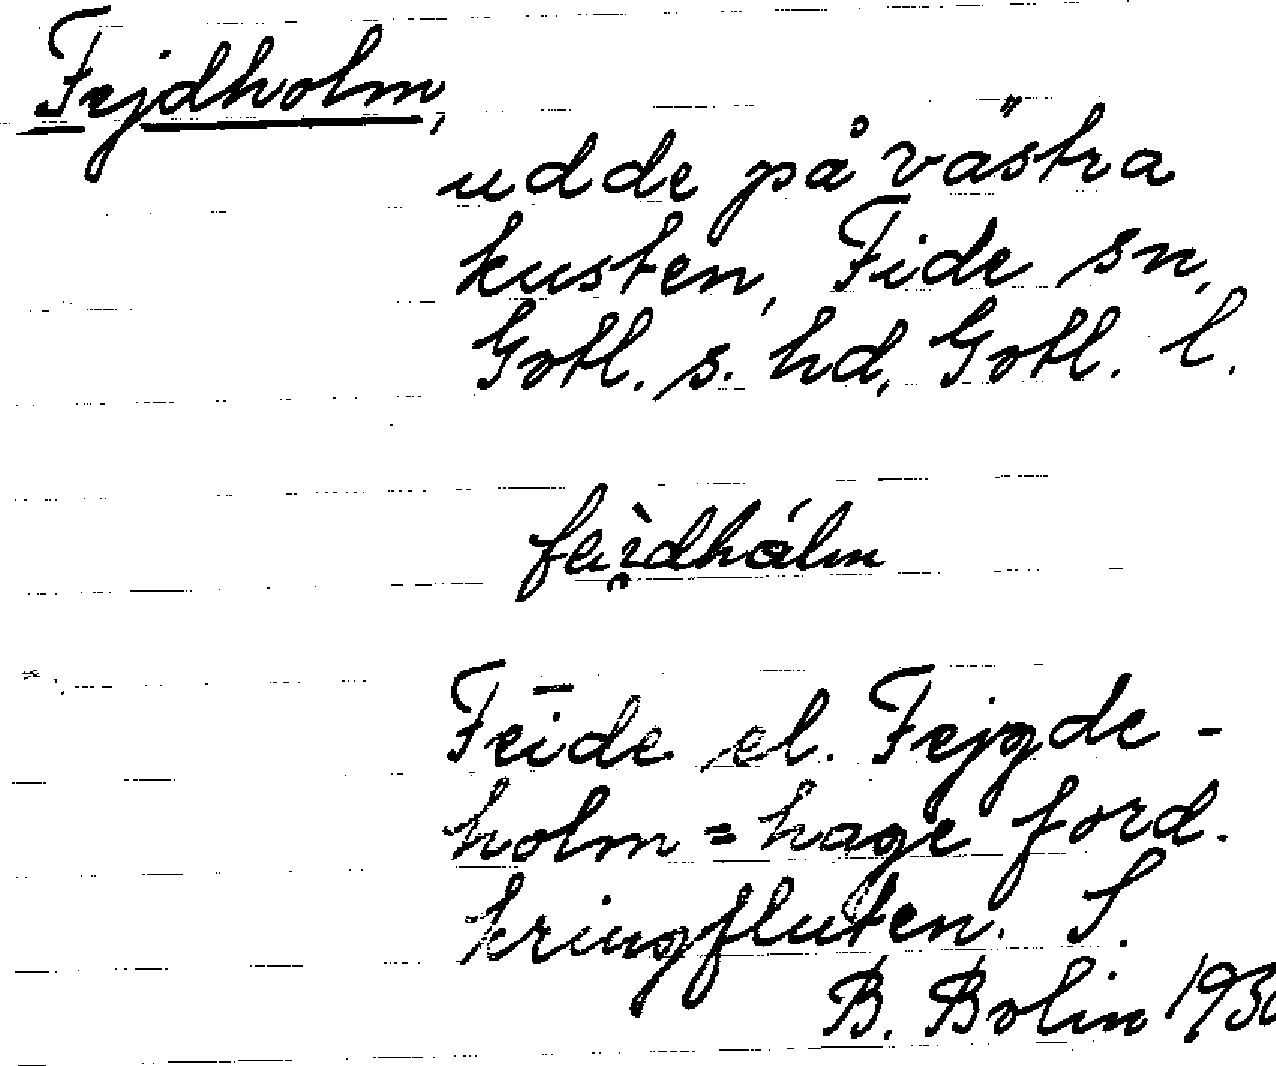 Fejdholm,
udde på västra
kusten, Fide sn,
Gotl. s. hd, Gotl. l.
Fēide el. Fejgde-
holm = hage ford.
kringfluten. S.
B. Bolin